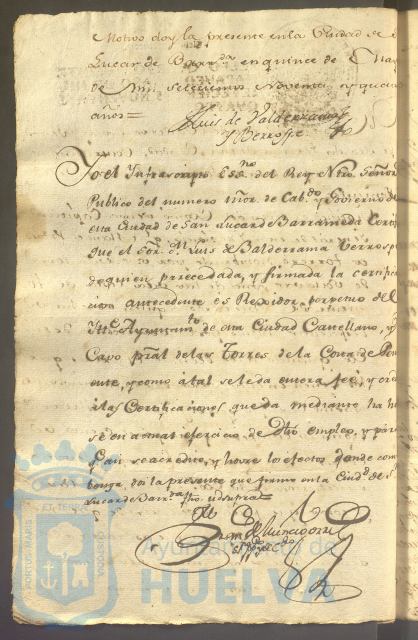 Motivo doy la presente en la Ciudad de S.
Lucar de Barrda en quince de Mar
de mil setecientos Noventa y quatro
años=
Luis de Valderrama
y Berrospe
Yo el Infrascripto Essno del Rey Ntro Señor
Publico del numero mor de Cabdo y Govierno de
esta Ciudad de San Lucar de Barrameda Certi
que el Sor Dn Luis de Balderrama Berrospe
de quien precedada, y firmada la certifi
cion antecedente es Rexidor perpetuo del
Itte Ayuntamto de esta Ciudad Castellano, y
Cavo pral de las Torres de la Costa de Poni
ente, y como a tal se le da entera fee, y
a las Certificaciones que da mediante ha
se en actual exercicio de dho empleo, y para
q an se acredite, y hovre los efectos donde com
benga doi la presente que firmo en la Ciudd de Sn
Lucar de Barrda fho ut supra
ET TERRA
PORTUS MARIS
CUSTODIA
Ayuntamiento de
HUELVA